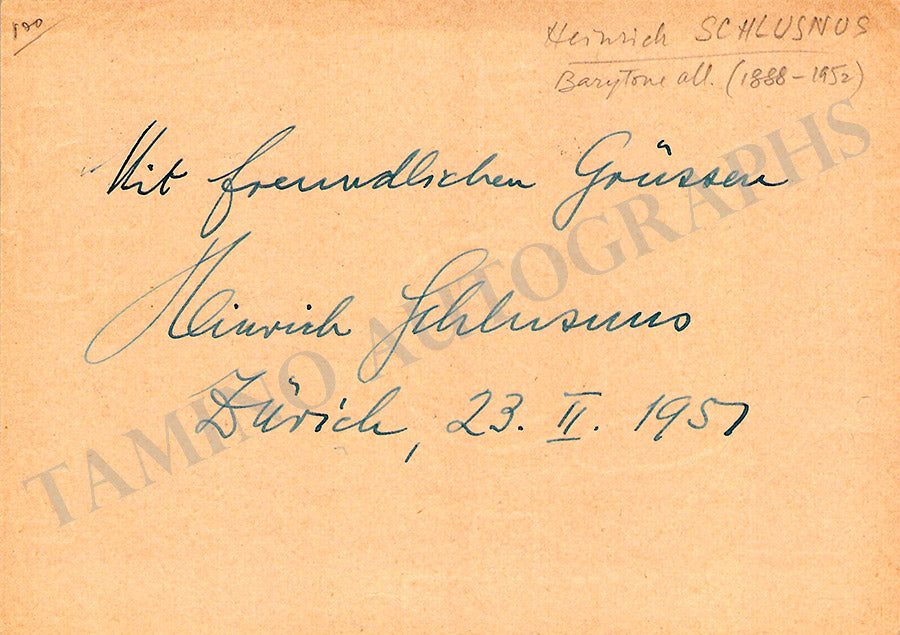 100
Heinrich SCHLUSNUS
Barytone all. (1888-1952)
Mit freundlichen Grüssen
Heinrich Schlusnus
Zürich, 23. II. 1951
TAMINO AUTOGRAPHS